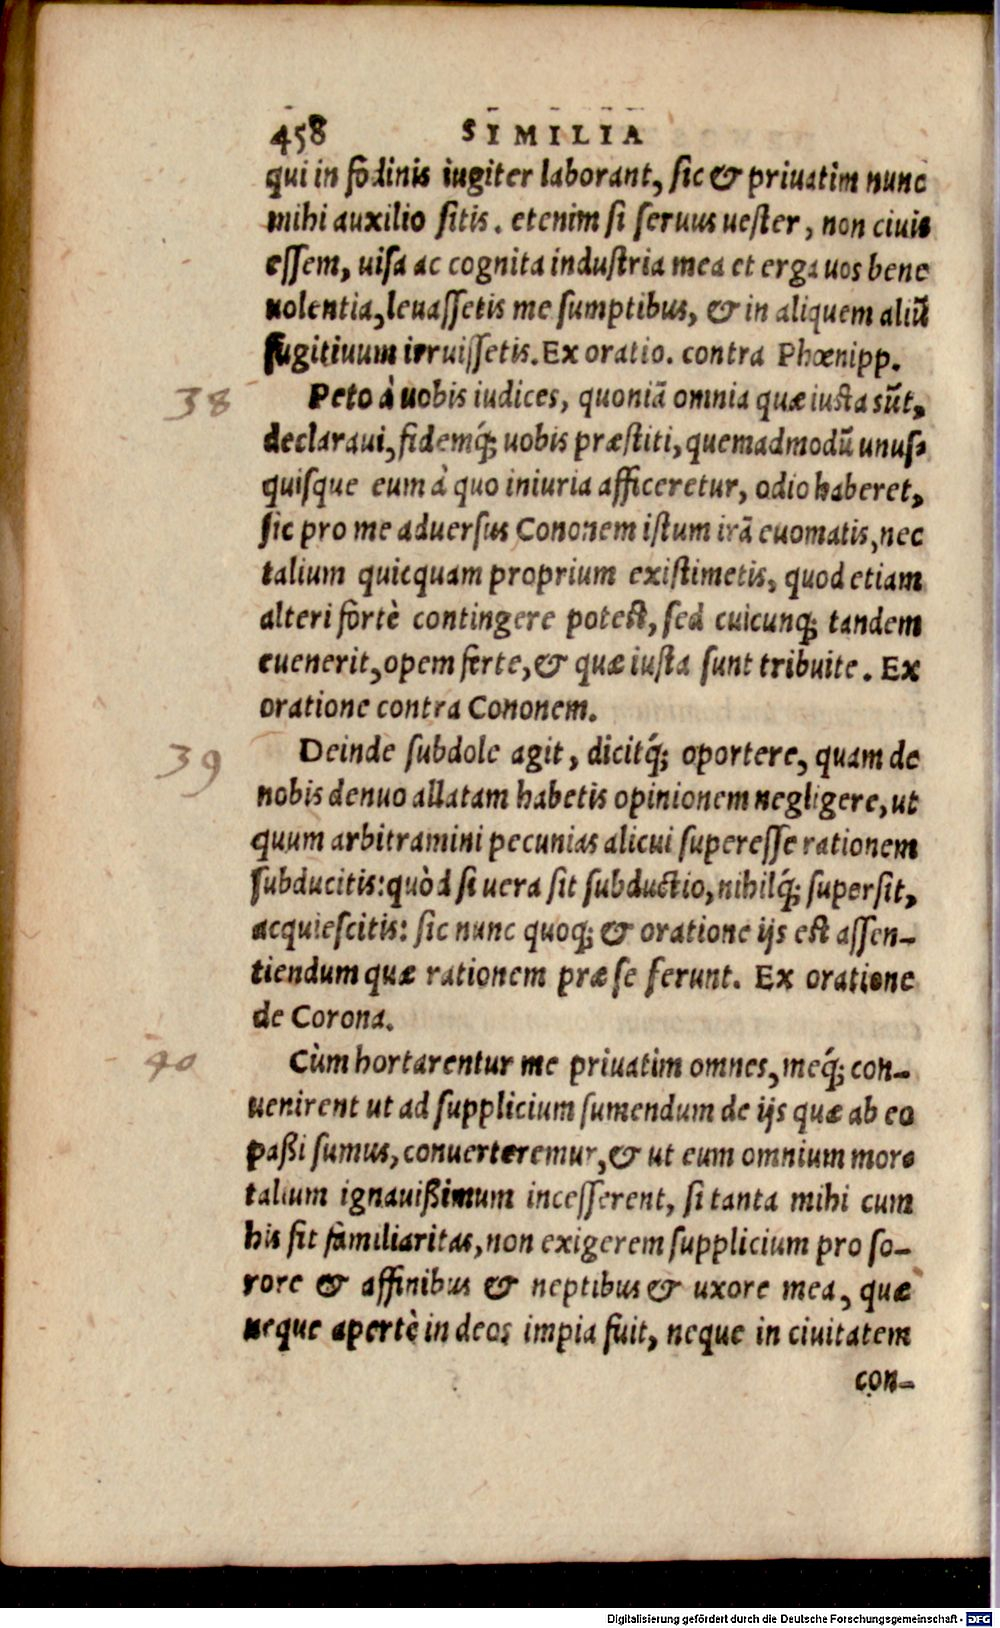 458 SIMILIA
qui in fodinis iugiter laborant, sic & priuatim nunc
mihi auxilio sitis. etenim si seruus uester, non ciuis
essem, uisa ac cognita industria mea et erga uos bene
uolentia, leuassetis me sumptibus, & in aliquem aliũ
fugitiuum irruissetis. Ex oratio. contra Phœnipp.
38 Peto à uobis iudices, quoniã omnia quæ iusta sũt,
declaraui, fidemq́; uobis præstiti, quemadmodũ unus-
quisque eum à quo iniuria afficeretur, odio haberet,
sic pro me aduersus Cononem istum irã euomatis, nec
talium quicquam proprium existimetis, quod etiam
alteri fortè contingere potest, sed cuicunq; tandem
euenerit, opem ferte, & quæ iusta sunt tribuite. Ex
oratione contra Cononem.
39 Deinde subdole agit, dicitq́; oportere, quam de
nobis denuo allatam habetis opinionem negligere, ut
quum arbitramini pecunias alicui superesse rationem
subducitis: quòd si uera sit subductio, nihilq́; supersit,
acquiescitis: sic nunc quoq; & oratione ijs est assen-
tiendum quæ rationem præ se ferunt. Ex oratione
de Corona.
40 Cùm hortarentur me priuatim omnes, meq́; con-
uenirent ut ad supplicium sumendum de ijs quæ ab eo
paßi sumus, conuerteremur, & ut eum omnium mor-
talium ignauißimum incesserent, si tanta mihi cum
his sit familiaritas, non exigerem supplicium pro so-
rore & affinibus & neptibus & uxore mea, quæ
neque apertè in deos impia fuit, neque in ciuitatem
con-
Digitalisierung gefördert durch die Deutsche Forschungsgemeinschaft - DFG